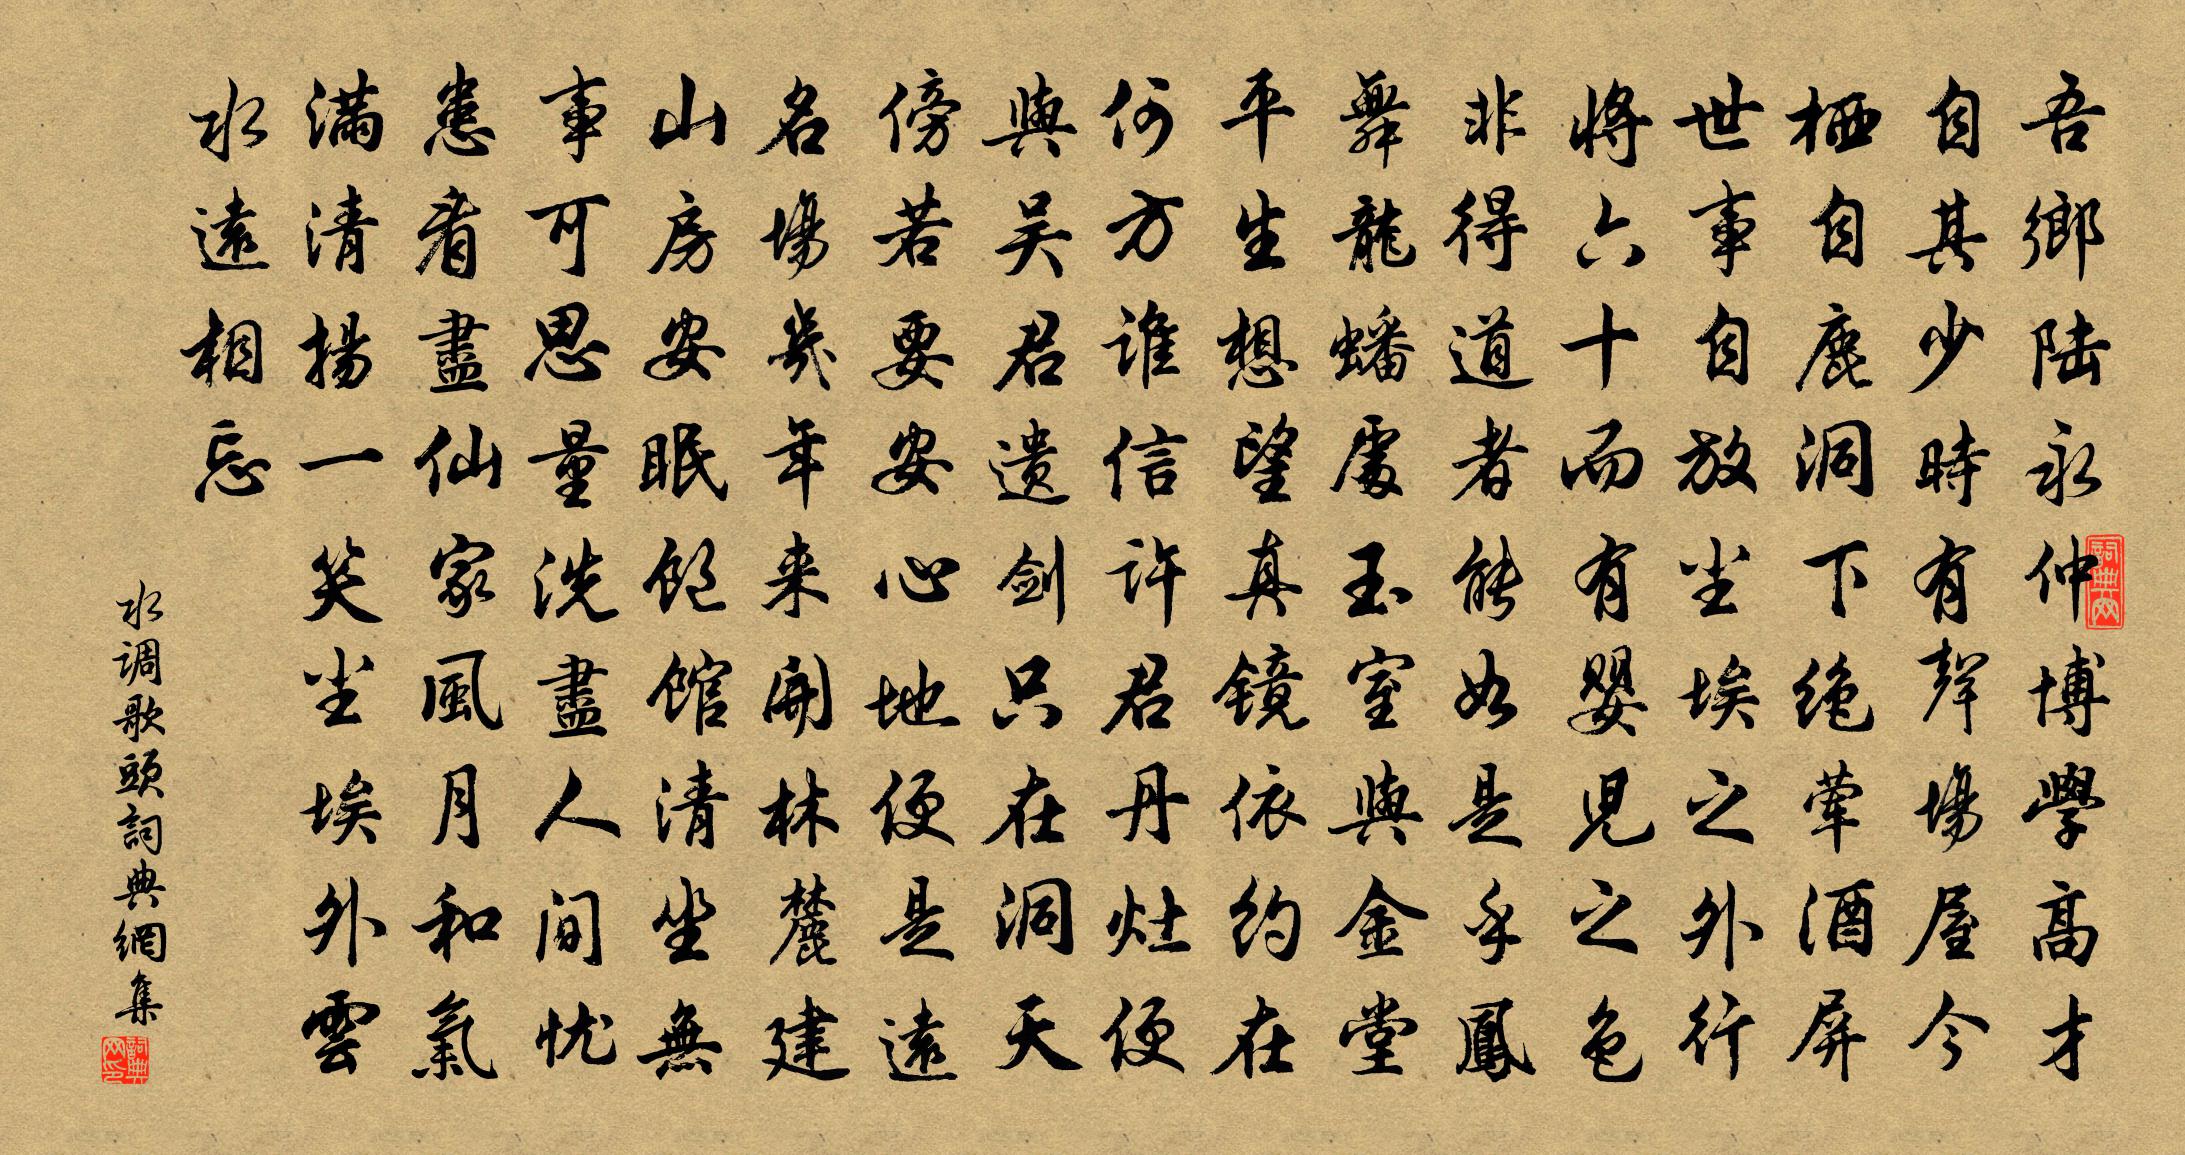 吾鄉陆永仲博學高才
自其少時有聲場屋今
栖自自鹿洞下绝荤酒屏
世事自放尘埃之外行
將六十而有婴児之色
非得道者能如是乎鳳
舞龍蟠處玉室與金堂
平生想望真镜依约在
何方谁信许君丹灶便
與吴君遗剑只在洞天
傍若要安心地便是遠
名場幾年来開林麓建
山房安眠饱馆清坐無
事可思量洗盡人间忧
患看盡仙家風月和氣
满清揚一笑尘埃外雲
水遠相忘
水调歌頭詞典網集
詞典网
詞典网印